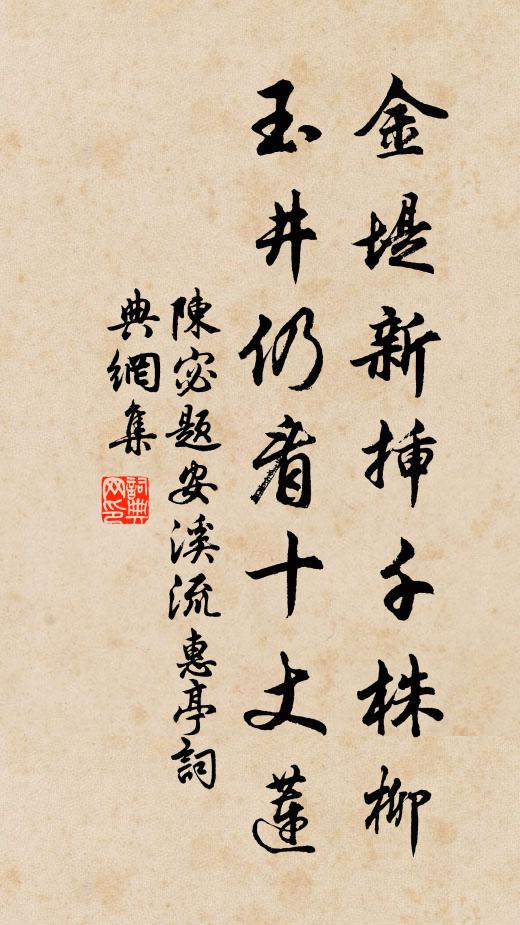 金堤新插千株柳
玉井仍看十丈蓮
陳宓題安溪流惠亭詞
典網集
詞典網印